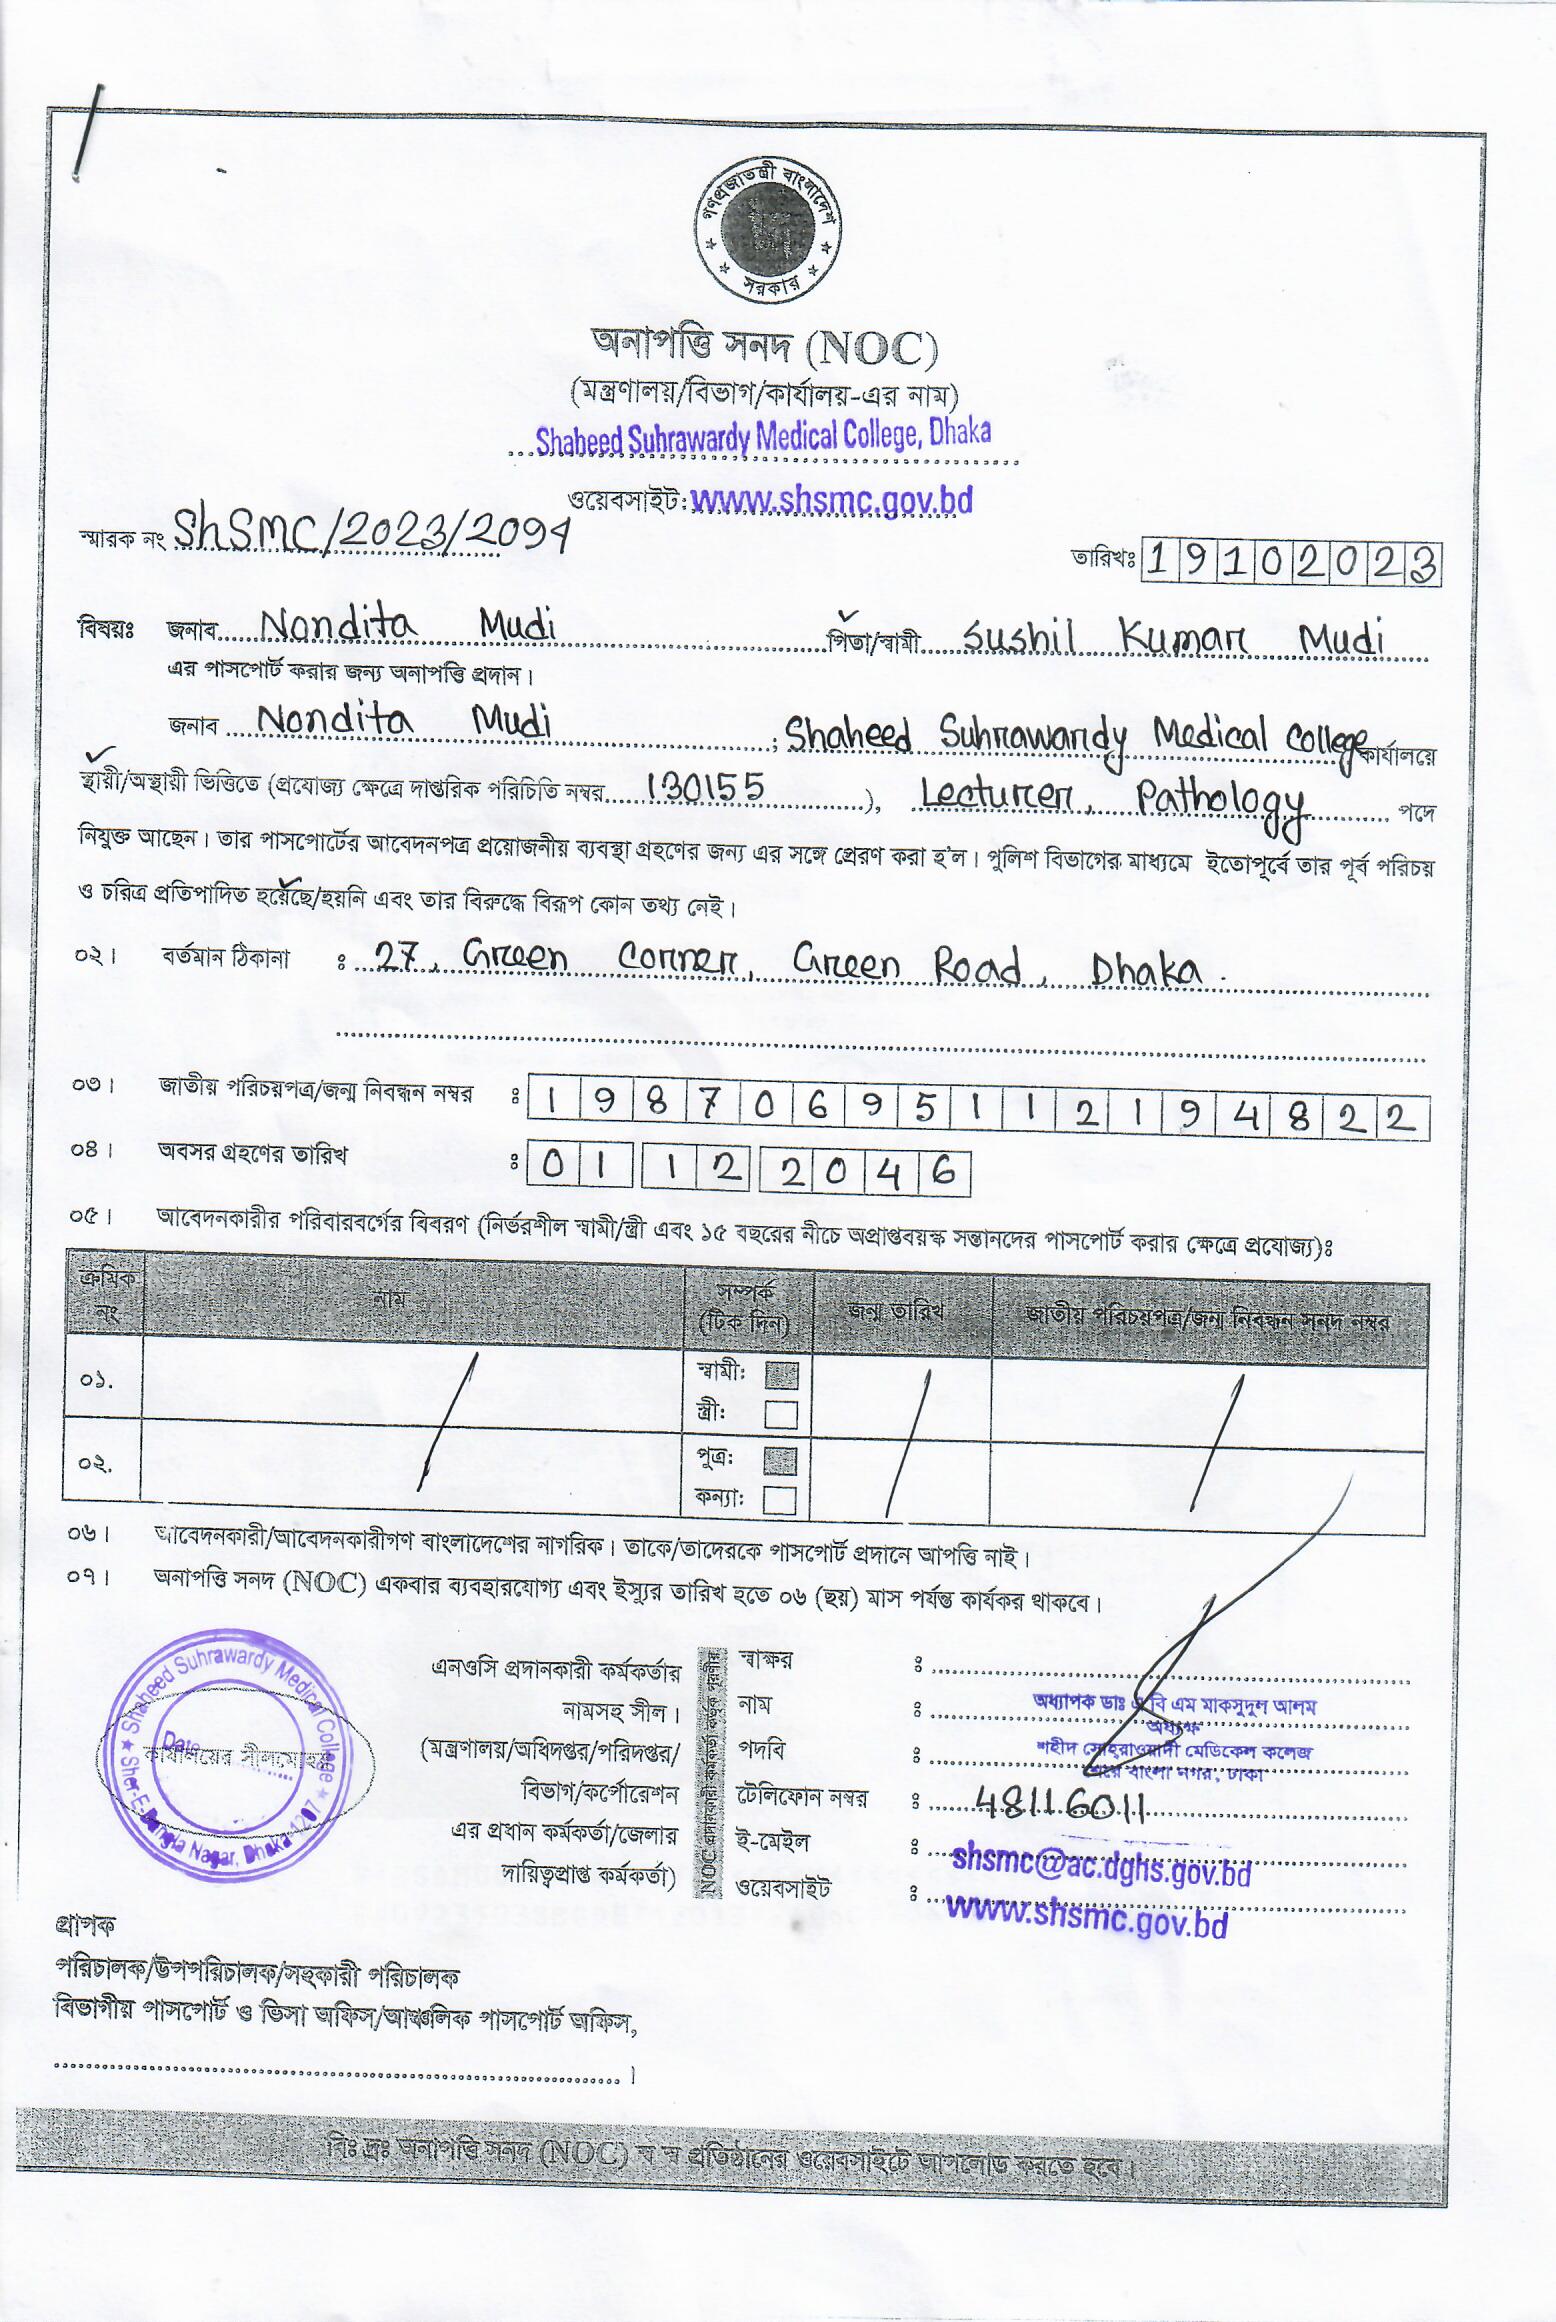 গণপ্রজাতন্ত্রী বাংলাদেশ
সরকার
অনাপত্তি সনদ (NOC)
(মন্ত্রণালয়/বিভাগ/কার্যালয়-এর নাম)
Shaheed Suhrawardy Medical College, Dhaka
ওয়েবসাইট: www.shsmc.gov.bd
স্মারক নং ShSMC/2023/2094
তারিখঃ 19102023
বিষয়ঃ জনাব Nondita Mudi পিতা/স্বামী Sushil Kumar Mudi
এর পাসপোর্ট করার জন্য অনাপত্তি প্রদান।
জনাব Nondita Mudi ; Shaheed Suhrawardy Medical College কার্যালয়ে
স্থায়ী/অস্থায়ী ভিত্তিতে (প্রযোজ্য ক্ষেত্রে দাপ্তরিক পরিচিতি নম্বর 130155), Lecturer, Pathology পদে
নিযুক্ত আছেন। তার পাসপোর্টের আবেদনপত্র প্রয়োজনীয় ব্যবস্থা গ্রহণের জন্য এর সঙ্গে প্রেরণ করা হ'ল। পুলিশ বিভাগের মাধ্যমে ইতোপূর্বে তার পূর্ব পরিচয়
ও চরিত্র প্রতিপাদিত হয়েছে/হয়নি এবং তার বিরুদ্ধে বিরূপ কোন তথ্য নেই।
০২। বর্তমান ঠিকানা ঃ 27, Green Corner, Green Road, Dhaka.
০৩। জাতীয় পরিচয়পত্র/জন্ম নিবন্ধন নম্বর ঃ 19870695112194822
০৪। অবসর গ্রহণের তারিখ ঃ 01 12 2046
০৫। আবেদনকারীর পরিবারবর্গের বিবরণ (নির্ভরশীল স্বামী/স্ত্রী এবং ১৫ বছরের নীচে অপ্রাপ্তবয়স্ক সন্তানদের পাসপোর্ট করার ক্ষেত্রে প্রযোজ্য)ঃ
ক্রমিক নং নাম সম্পর্ক (টিক দিন) জন্ম তারিখ জাতীয় পরিচয়পত্র/জন্ম নিবন্ধন সনদ নম্বর
০১. স্বামী:
স্ত্রী:
০২. পুত্র:
কন্যা:
০৬। আবেদনকারী/আবেদনকারীগণ বাংলাদেশের নাগরিক। তাকে/তাদেরকে পাসপোর্ট প্রদানে আপত্তি নাই।
০৭। অনাপত্তি সনদ (NOC) একবার ব্যবহারযোগ্য এবং ইস্যুর তারিখ হতে ০৬ (ছয়) মাস পর্যন্ত কার্যকর থাকবে।
Shaheed Suhrawardy Medical College
Sher-E-Bangla Nagar, Dhaka-1207
Date
কার্যালয়ের সীলমোহর
এনওসি প্রদানকারী কর্মকর্তার
নামসহ সীল।
(মন্ত্রণালয়/অধিদপ্তর/পরিদপ্তর/
বিভাগ/কর্পোরেশন
এর প্রধান কর্মকর্তা/জেলার
দায়িত্বপ্রাপ্ত কর্মকর্তা)
NOC প্রদানকারী কর্মকর্তা কর্তৃক পূরণীয়
স্বাক্ষর ঃ
নাম ঃ অধ্যাপক ডাঃ এ বি এম মাকসুদুল আলম
অধ্যক্ষ
পদবি ঃ শহীদ সোহরাওয়ার্দী মেডিকেল কলেজ
শেরে বাংলা নগর, ঢাকা
টেলিফোন নম্বর ঃ 48116011
ই-মেইল ঃ shsmc@ac.dghs.gov.bd
ওয়েবসাইট ঃ www.shsmc.gov.bd
প্রাপক
পরিচালক/উপপরিচালক/সহকারী পরিচালক
বিভাগীয় পাসপোর্ট ও ভিসা অফিস/আঞ্চলিক পাসপোর্ট অফিস,
বিঃ দ্রঃ অনাপত্তি সনদ (NOC) স্ব স্ব প্রতিষ্ঠানের ওয়েবসাইটে আপলোড করতে হবে।